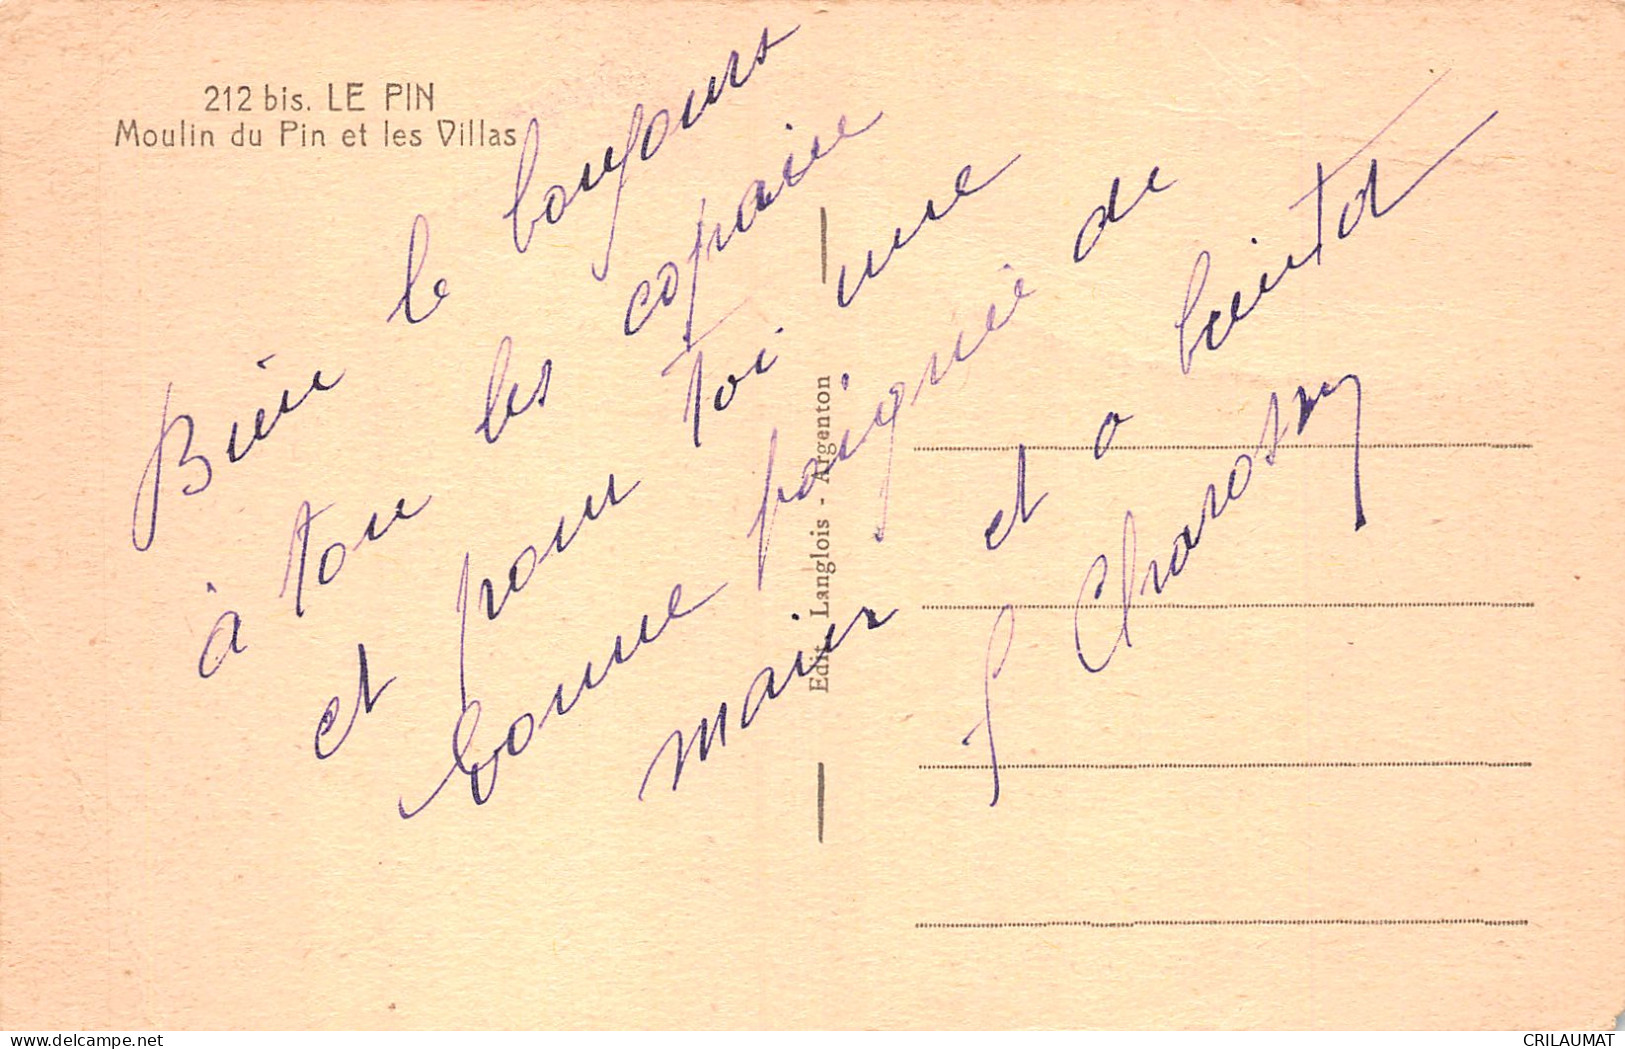 212 bis. LE PIN
Moulin du Pin et les Villas
Bien le bonjours
à tou les copain
et pour toi une
bonne poignée de
main et a bientot
Edit. Langlois - Argenton
delcampe.net
CRILAUMAT